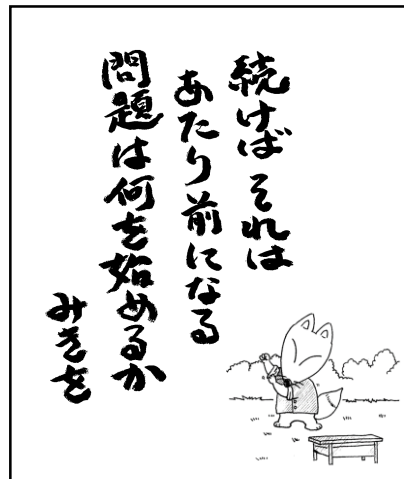 続けば それは
あたり前になる
問題は何を始めるか
みきを